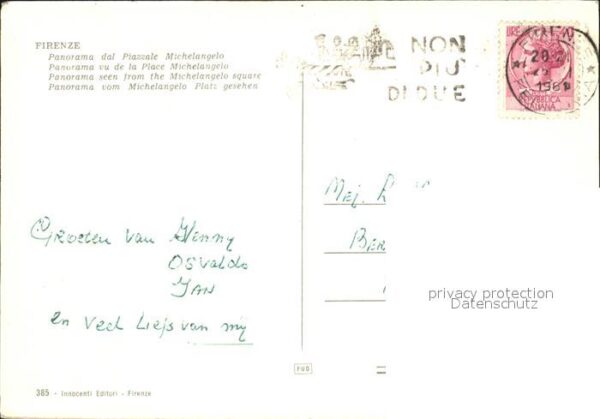 FIRENZE
Panorama dal Piazzale Michelangelo
Panorama vu de la Place Michelangelo
Panorama seen from the Michelangelo square
Panorama vom Michelangelo Platz gesehen
NON
PIÙ
DI DUE
LIRE
20
REPUBBLICA
ITALIANA
Mej.
BER
Groeten van Jenny
Osvaldo
Jan
en veel Liefs van mij
privacy protection
Datenschutz
FUO
385 - Innocenti Editori - Firenze